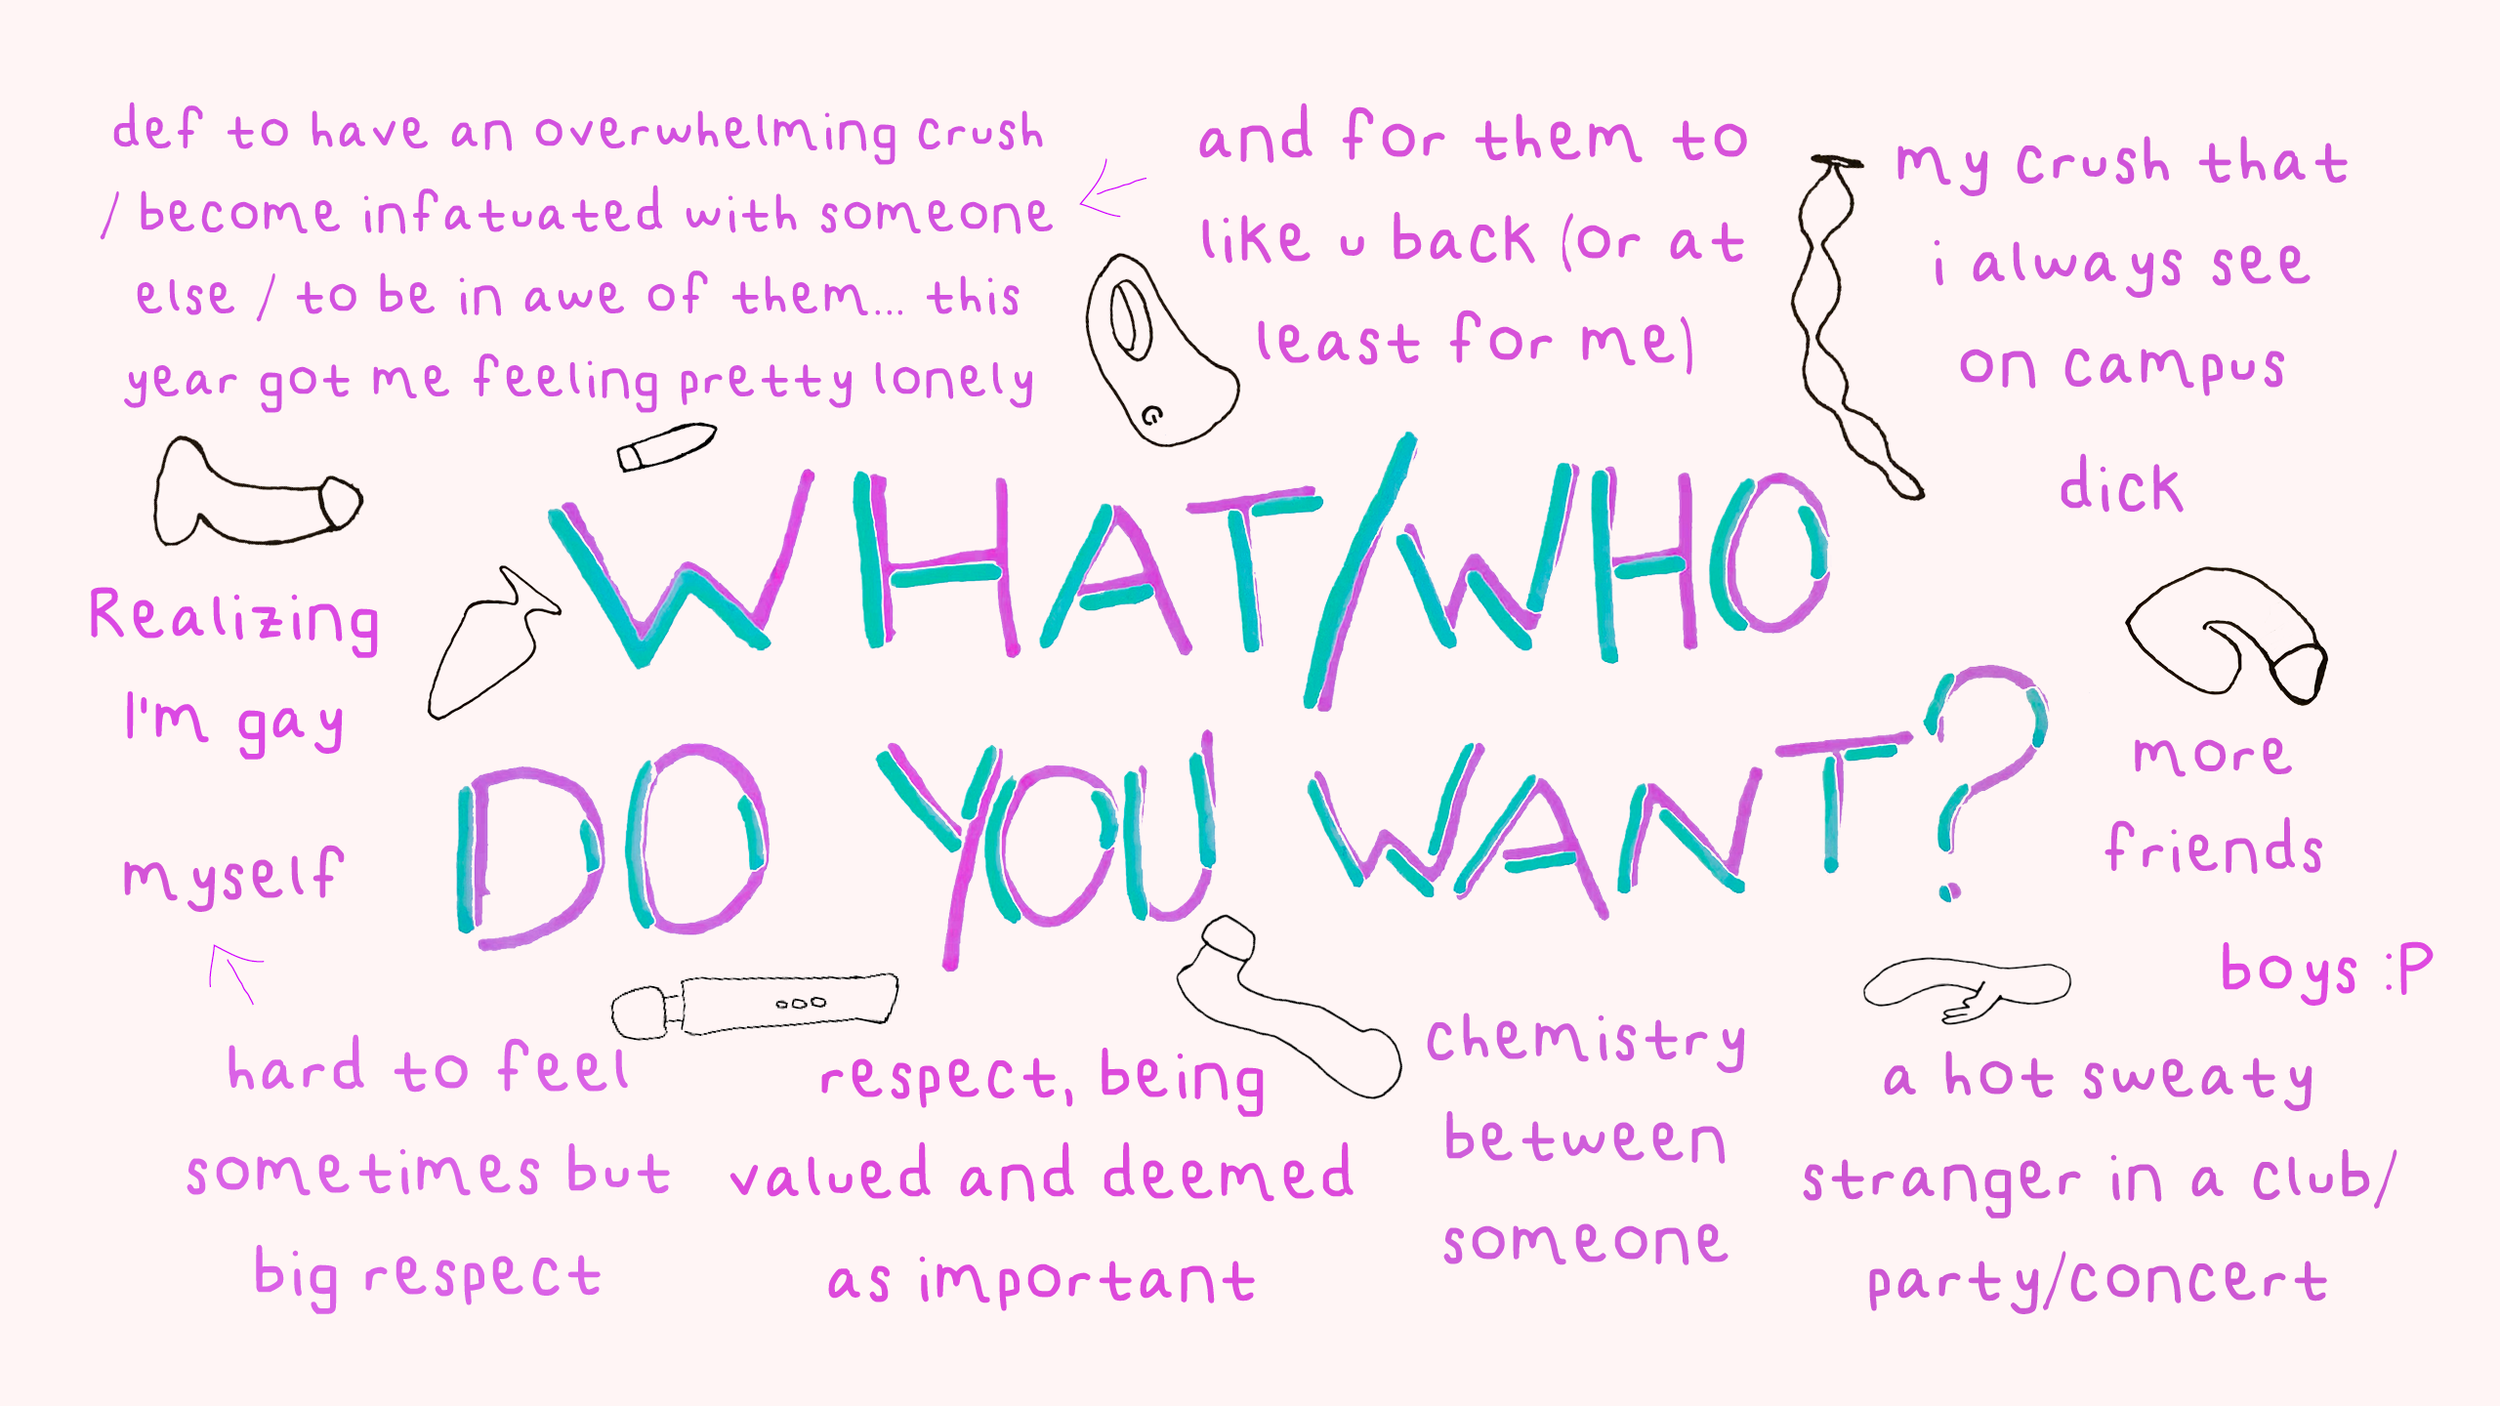 def to have an overwhelming crush
/ become infatuated with someone
else / to be in awe of them... this
year got me feeling pretty lonely
and for them to
like u back (or at
least for me)
my crush that
i always see
on campus
dick
WHAT/WHO
DO YOU WANT?
Realizing
I'm gay
myself
more
friends
boys :P
hard to feel
sometimes but
big respect
respect, being
valued and deemed
as important
chemistry
between
someone
a hot sweaty
stranger in a club/
party/concert